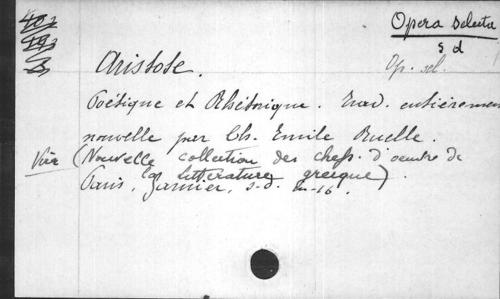 Opera selecta
s d
Op. sel.
Aristote.
Poétique et Rhétorique. Trad. entièrement
nouvelle par Ch. Emile Ruelle.
(Nouvelle collection des chefs d'oeuvre de
la littérature grecque)
Paris, Garnier, s.d. in-16.